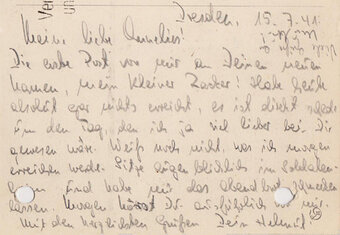 Ver
un
Dresden, 15.7.41.
Meine liebe Annelies!
Die erste Post von mir an Deinen neuen
Namen, mein kleiner Zacker. Habe heute
absolut gar nichts erreicht, es ist direkt schade
um den Tag, den ich ja viel lieber bei Dir
gewesen wäre. Weiß noch nicht, was ich morgen
erreichen werde. Sitze augenblicklich im Soldaten-
und habe mir das Abendbrot schmecken
lassen. Morgen hörst Du ausführlich von mir.
Mit den herzlichsten Grüßen Dein Helmut